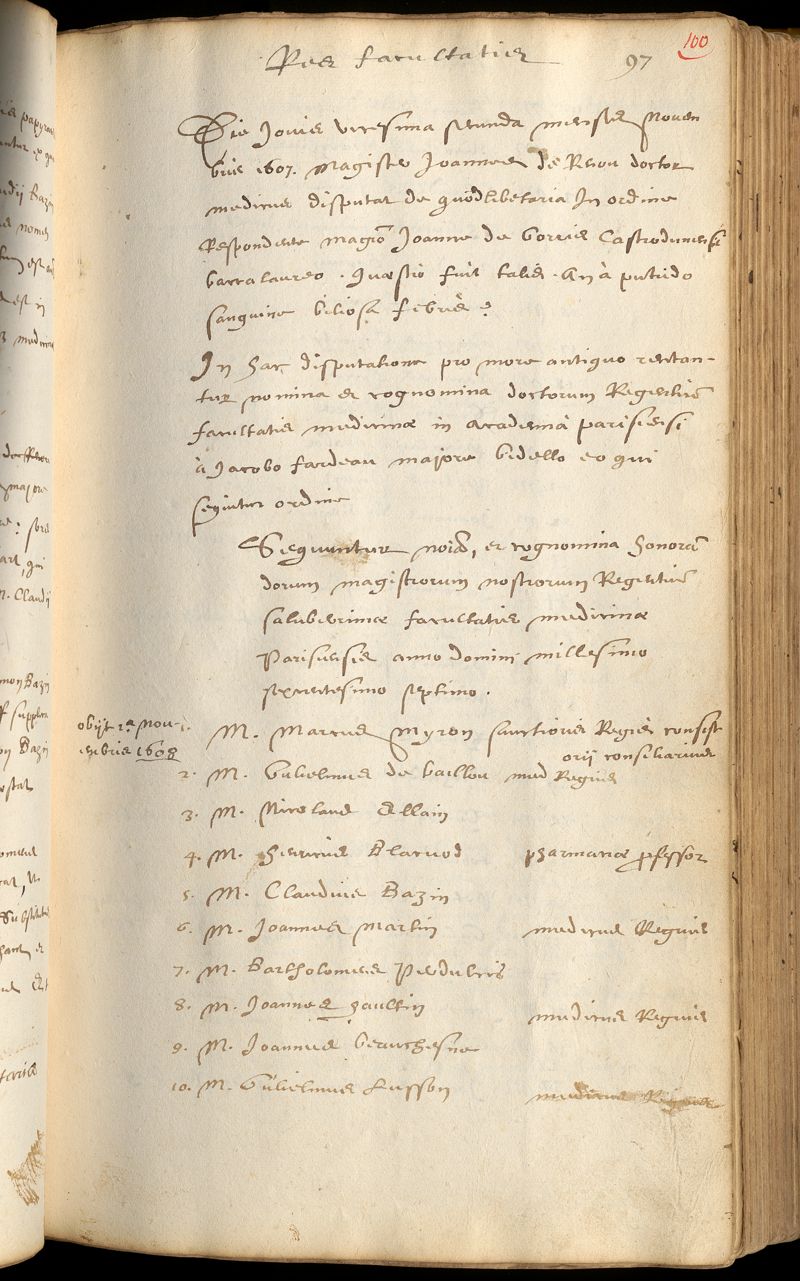 Res facultatis 97 100
Die Jovis vicesima secunda mensis Noven
bris 1607. Magister Joannes de Renou doctor
medicus disputat de quodlibetaria In ordine
Respondente magrõ Joanne de Gorris Castrodunensi
baccalaureo. Quæstio fuit talis. An à putrido
sanguine biliosa febris?
In hac disputatione pro more antiquo recitan-
tur nomina et cognomina doctorum Regentiũ
facultatis medicinæ in academiâ parisiensi
à Jacobo fardeau majore bidello eo qui
sequitur ordine
Sequuntur noĩa, et cognomina honorã
dorum magistrorum nostrorum Regentiũ
saluberrimæ facultatis medicinæ
Parisiensis anno domini millesimo
sexcentesimo septimo.
obijt 1.a Nou-
enbris 1608
1. M. Marcus Myron sanctioris Regis consist
orij consiliarius
2. M. Gulielmus de baillou med Regius
3. M. Nicolaus Ellain
4. M. Henricus Blacuod pharmaciæ professor
5. M. Claudius Bazin
6. M. Joannes Martin medicus Regius
7. M. Bartholomeus Perdulcis
8. M. Joannes Haultin medicus Regius
9. M. Joannes beauchesne
10. M. Gulielmus Lusson medicus Regius